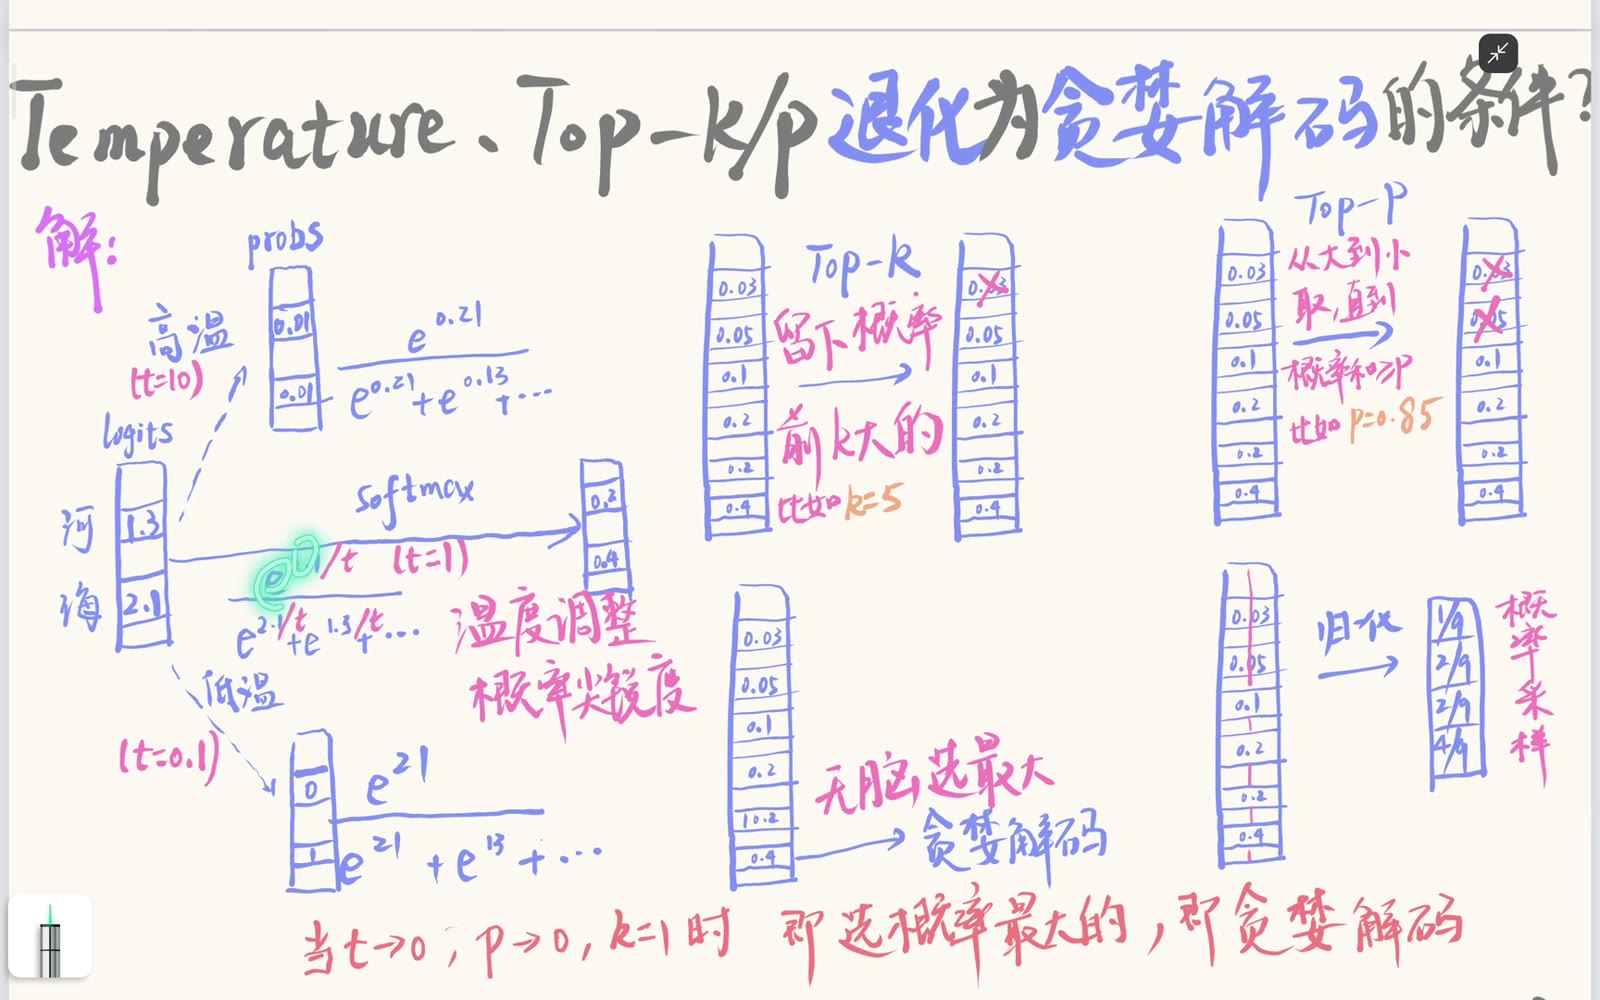 Temperature、Top-k/p 退化为贪婪解码的条件？
解：
probs
0.01
0.01
高温
(t=10)
e^0.21
e^0.21+e^0.13+…
logits
河 1.3
海 2.1
softmax
/t (t=1)
e^2.1/t+e^1.3/t+…
0.2
0.4
温度调整
概率尖锐度
低温
(t=0.1)
0
1
e^21
e^21+e^13+…
0.03
0.05
0.1
0.2
0.2
0.4
Top-k
留下概率
前k大的
比如k=5
0.03
0.05
0.1
0.2
0.2
0.4
0.03
0.05
0.1
0.2
0.2
0.4
Top-P
从大到小
取,直到
概率和≥P
比如 P=0.85
0.03
0.05
0.1
0.2
0.2
0.4
0.03
0.05
0.1
0.2
10.2
0.4
无脑选最大
贪婪解码
0.03
0.05
0.1
0.2
0.2
0.4
归一化
1/9
2/9
2/9
4/9
概率采样
当t→0，p→0，k=1时 即选概率最大的，即贪婪解码